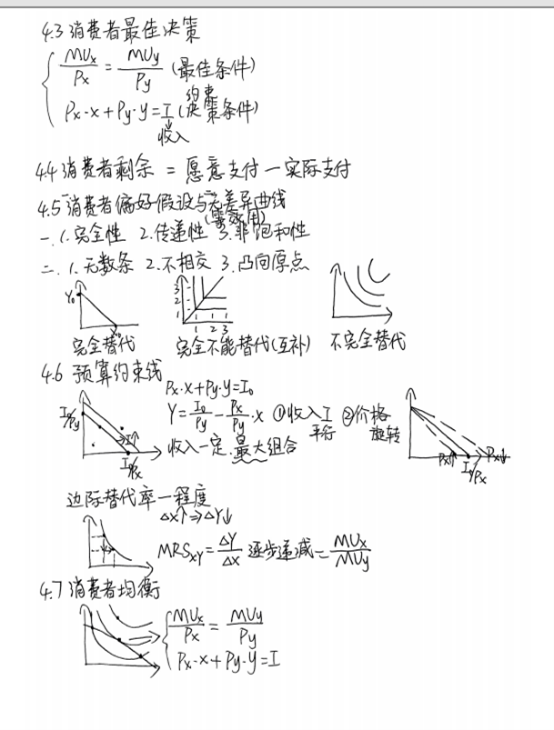 4.3 消费者最佳决策
MUx/Px = MUy/Py (最佳条件)
Px·x+Py·y=I (约束决策条件)
收入
4.4 消费者剩余 = 愿意支付 — 实际支付
4.5 消费者偏好假设与无差异曲线
(等效用)
一. 1. 完全性 2. 传递性 3. 非饱和性
二. 1. 无数条 2. 不相交 3. 凸向原点
Y₀ X₀
3 2 1 1 2 3
完全替代 完全不能替代(互补) 不完全替代
4.6 预算约束线
Px·x+Py·y=I₀
Y=I₀/Py-Px/Py·x ①收入I 平行 ②价格 旋转
收入一定.最大组合
I₀/Py I↑ I₀/Px
Px↑ I₀/Px Px↓
边际替代率—程度
ΔX↑⇒ΔY↓
MRSxy=ΔY/ΔX 逐步递减=MUx/MUy
4.7 消费者均衡
MUx/Px = MUy/Py
Px·x+Py·y=I